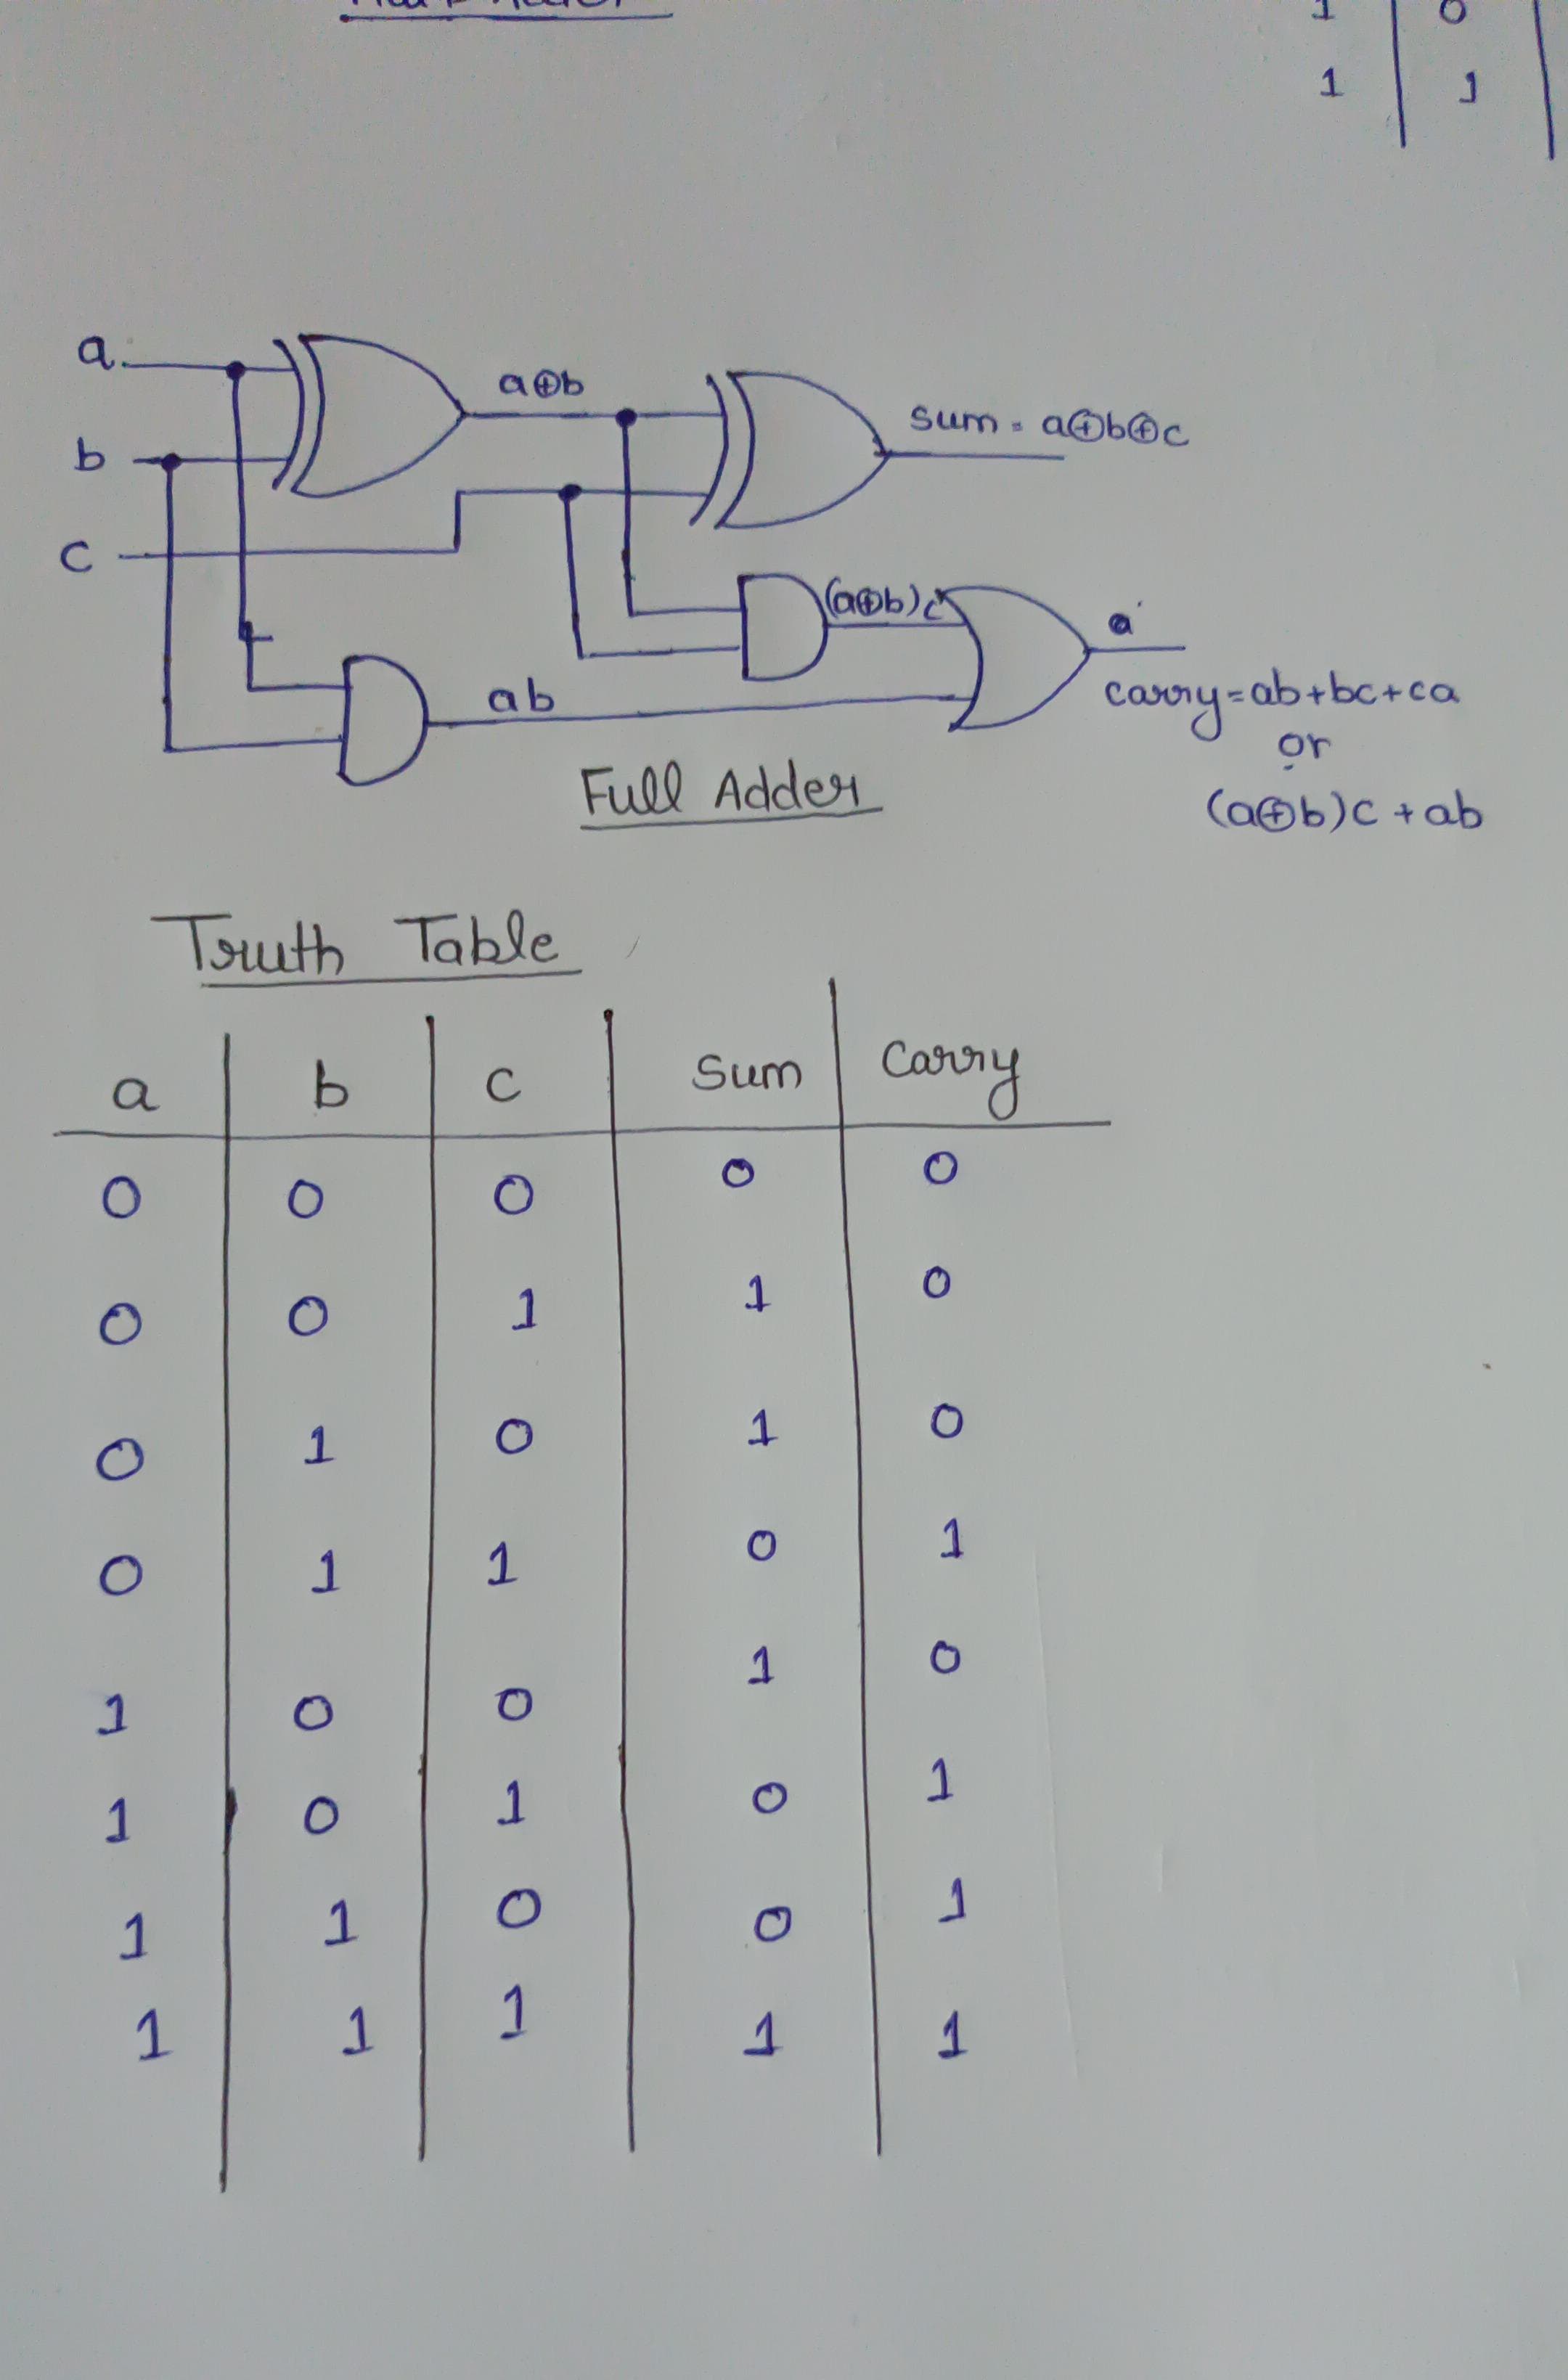 Half Adder
1 0
1 1
a
b
c
a⊕b
sum = a⊕b⊕c
(a⊕b)c
a
ab
carry=ab+bc+ca
or
(a⊕b)c + ab
Full Adder
Truth Table
a b c Sum Carry
0 0 0 0 0
0 0 1 1 0
0 1 0 1 0
0 1 1 0 1
1 0 0 1 0
1 0 1 0 1
1 1 0 0 1
1 1 1 1 1